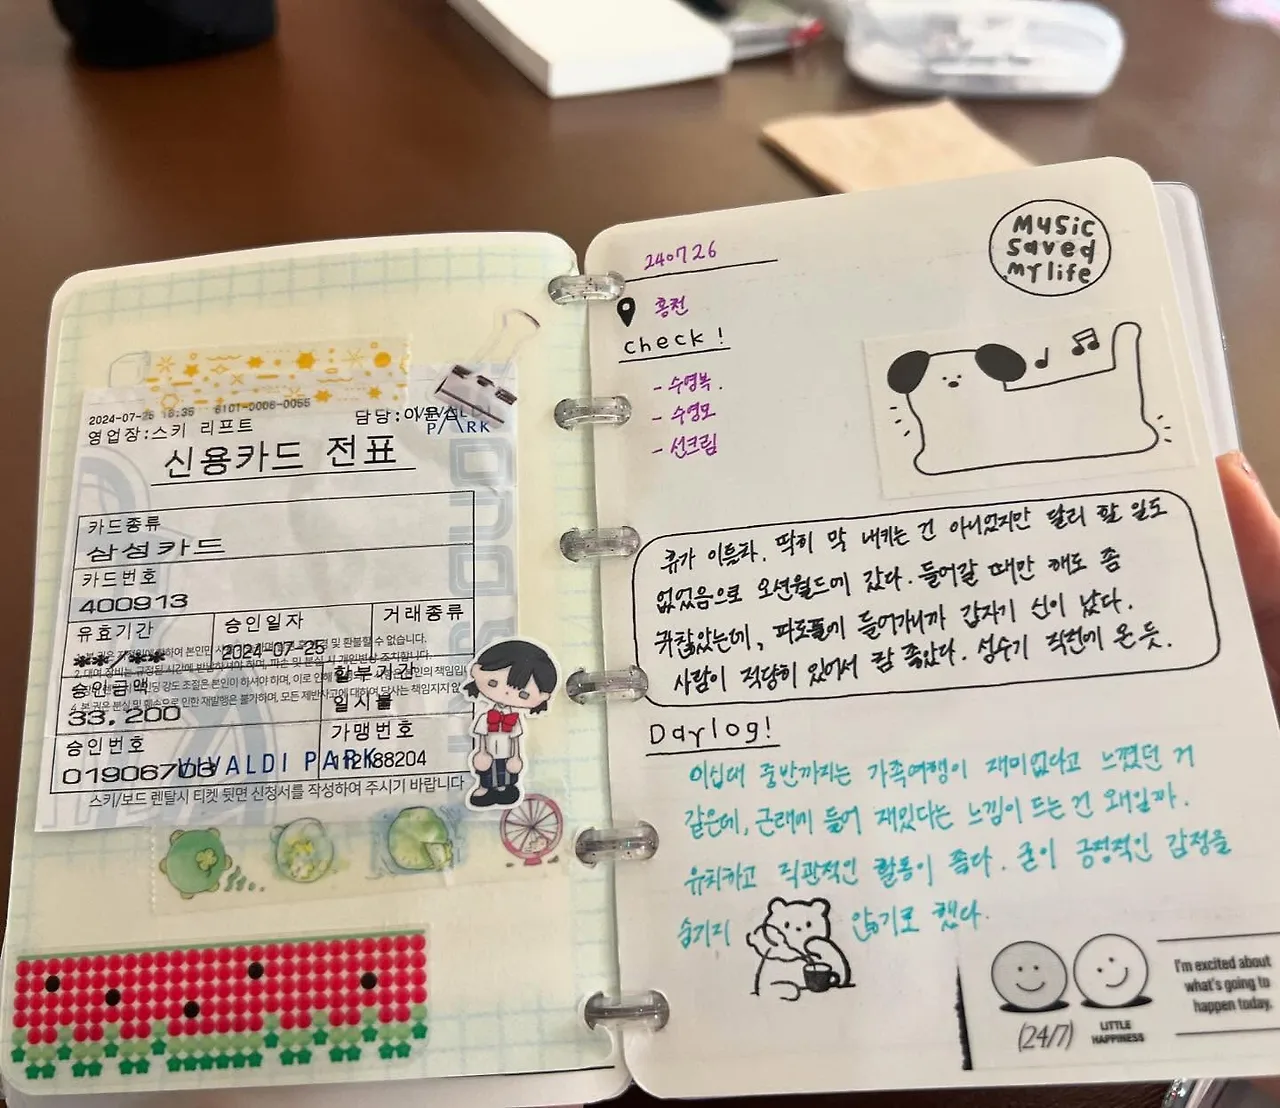 2024-07-25 18:35 6101-0006-0055
영업장:스키 리프트
담당:이윤
VIVALDI
PARK
신용카드 전표
카드종류
삼성카드
카드번호
400913
유효기간 승인일자 거래종류
**/** 2024-07-25
승인금액 할부기간
33,200 일시불
승인번호 가맹번호
01906703
VIVALDI PARK
스키/보드 렌탈시 티켓 뒷면 신청서를 작성하여 주시기 바랍니다
240726
홍천
check!
- 수영복.
- 수영모
- 선크림
MUSIC
saved
my life
휴가 이틀차. 딱히 막 내키는 건 아니었지만 달리 할 일도
없었음으로 오션월드에 갔다. 들어갈 때만 해도 좀
귀찮았는데, 파도풀에 들어가니까 갑자기 신이 났다.
사람이 적당히 있어서 참 좋았다. 성수기 직전에 온 듯.
Daylog!
이십대 중반까지는 가족여행이 재미없다고 느꼈던 거
같은데, 근래에 들어 재밌다는 느낌이 드는 건 왜일까.
유치하고 직관적인 활동이 좋다. 굳이 긍정적인 감정을
숨기지 않기로 했다.
(24/7)
LITTLE
HAPPINESS
I'm excited about
what's going to
happen today.